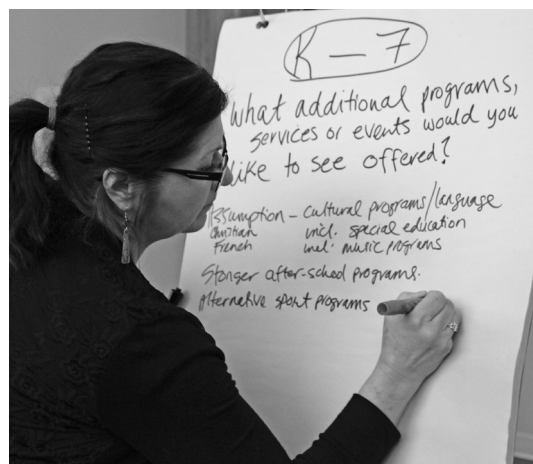 K - 7
What additional programs,
services or events would you
like to see offered?
Assumption - cultural programs/language
Christian incl. special education
French incl. music programs
Stonger after-school programs.
Alternative sport programs